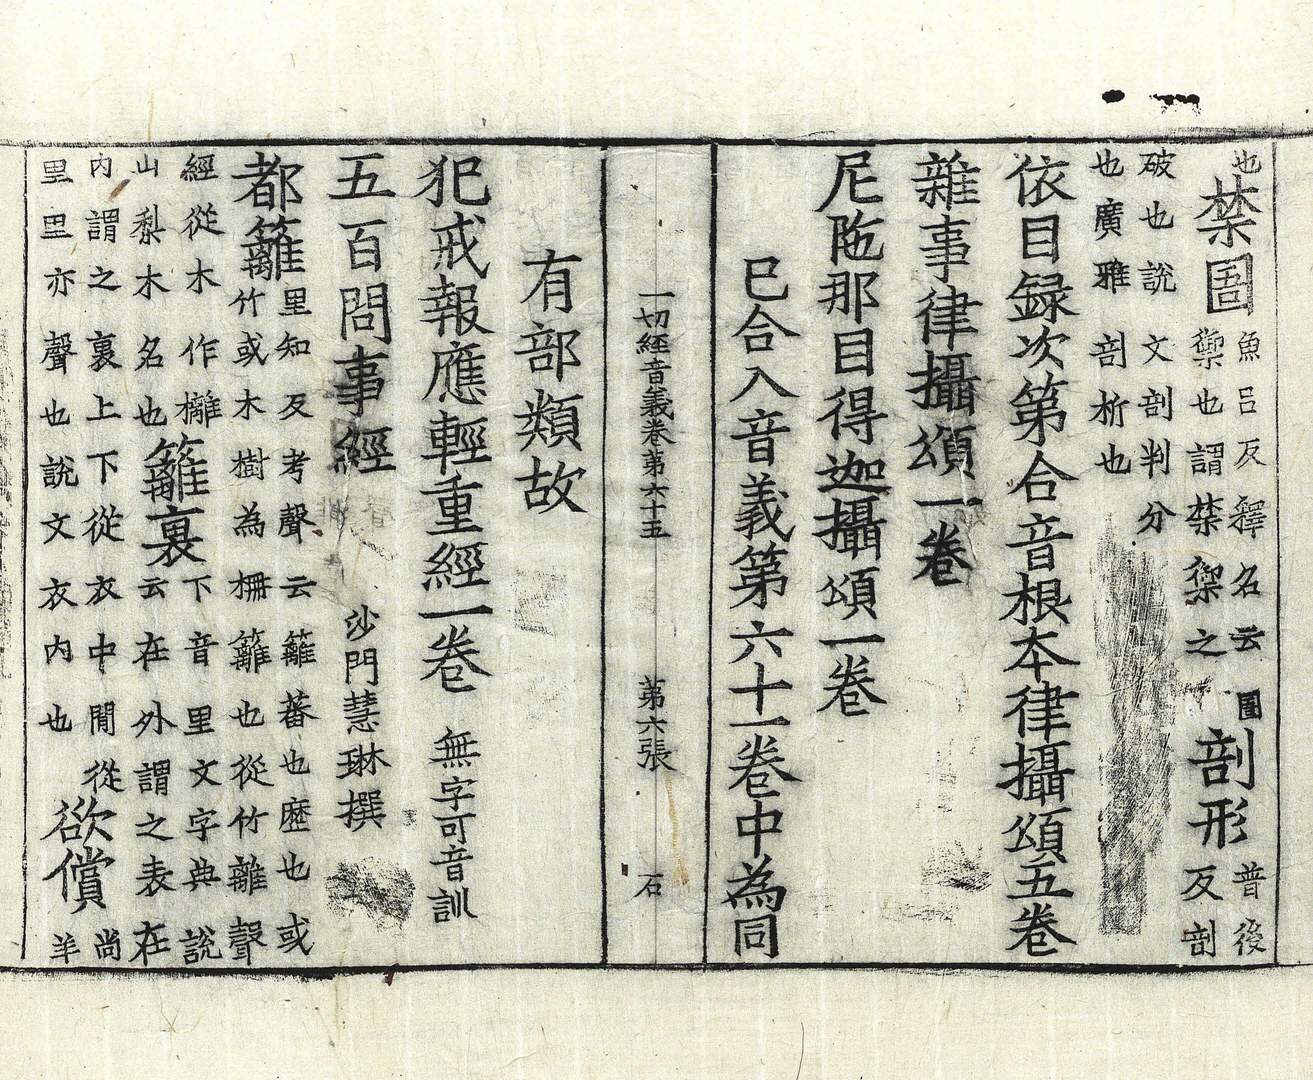 也禁圄魚呂反釋名云圄
禦也謂禁禦之剖形普後
反剖
破也說文剖判分
也廣雅剖析也
依目録次第合音根本律攝頌五卷
雜事律攝頌一卷
尼陁那目得迦攝頌一卷
已合入音義第六十一卷中為同
一切經音義卷第六十五 第六張 石
有部類故
犯戒報應輕重經一卷 無字可音訓
五百問事經 沙門慧琳撰
都籬里知反考聲云籬蕃也歷也或
竹或木樹為柵籬也從竹離聲
經從木作樆
山梨木名也籬裏下音里文字典說
云在外謂之表在
內謂之裏上下從衣中間從
里里亦聲也說文衣內也欲償尚
羊